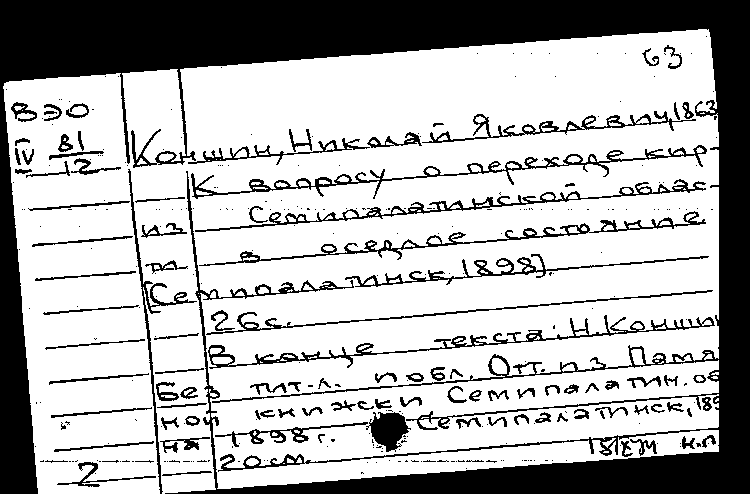 63
ВЭО
IV 81/12
Коншин, Николай Яковлевич, 1863
К вопросу о переходе кир-
из Семипалатинской облас-
ти в оседлое состояние
[Семипалатинск, 1898].
26с.
В конце текста: Н. Коншин
Без тит. л. и обл. Отт. из Памят
ной книжки Семипалатин. об
на 1898 г. Семипалатинск, 189
20см.
2